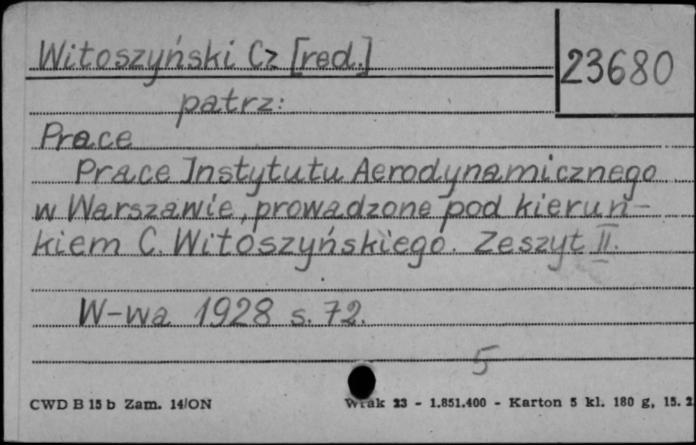 Witoszyński Cz [red.]
23680
patrz:
Prace
Prace Instytutu Aerodynamicznego
w Warszawie, prowadzone pod kierun-
kiem C. Witoszyńskiego. Zeszyt II.
W-wa 1928 s. 72.
5
CWD B 15 b Zam. 14/ON
Wrak 23 - 1.851.400 - Karton 5 kl. 180 g, 15. 2